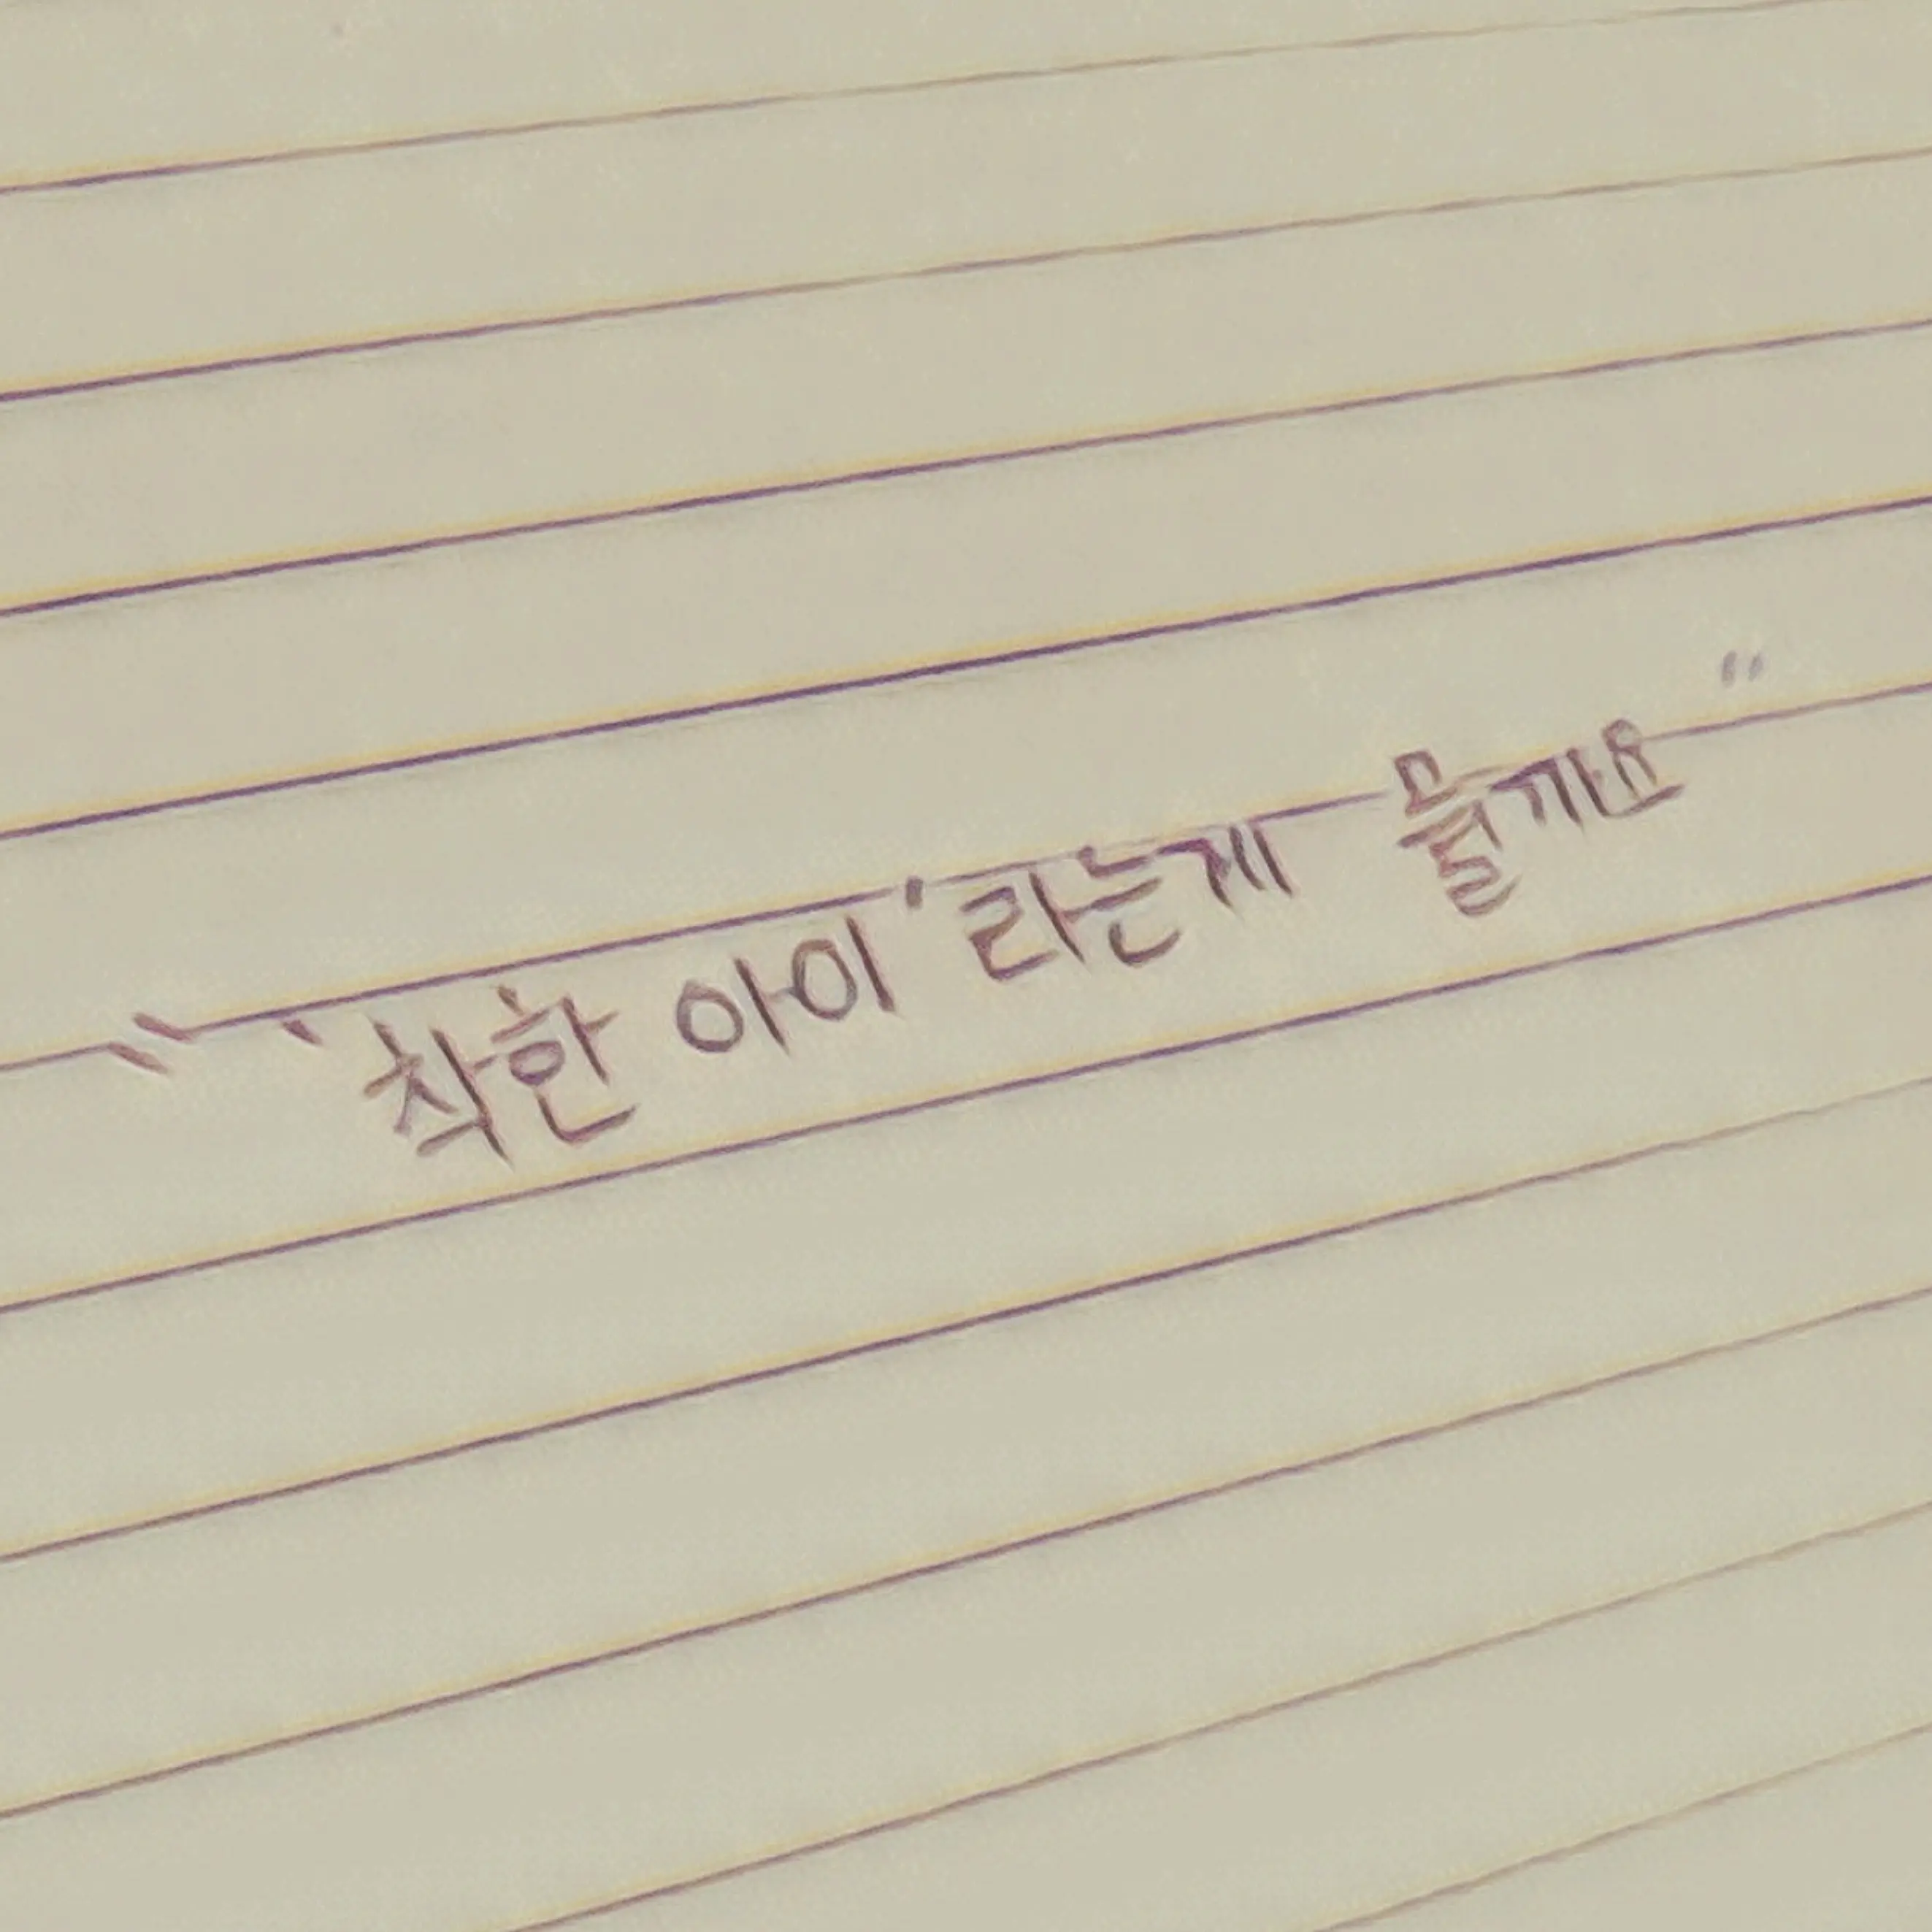 "'착한 아이'라는게 뭘까요"